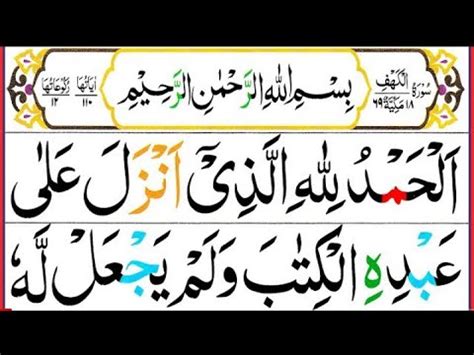 سُوْرَةُ الْكَهْفِ
١٨ مَكِّيَّةٌ ٦٩
بِسْمِ اللّٰهِ الرَّحْمٰنِ الرَّحِيْمِ
اٰيَاتُهَا ١١٠
رُكُوْعَاتُهَا ١٢
اَلْحَمْدُ لِلّٰهِ الَّذِیْۤ اَنْزَلَ عَلٰى
عَبْدِهِ الْكِتٰبَ وَلَمْ يَجْعَلْ لَّهٗ